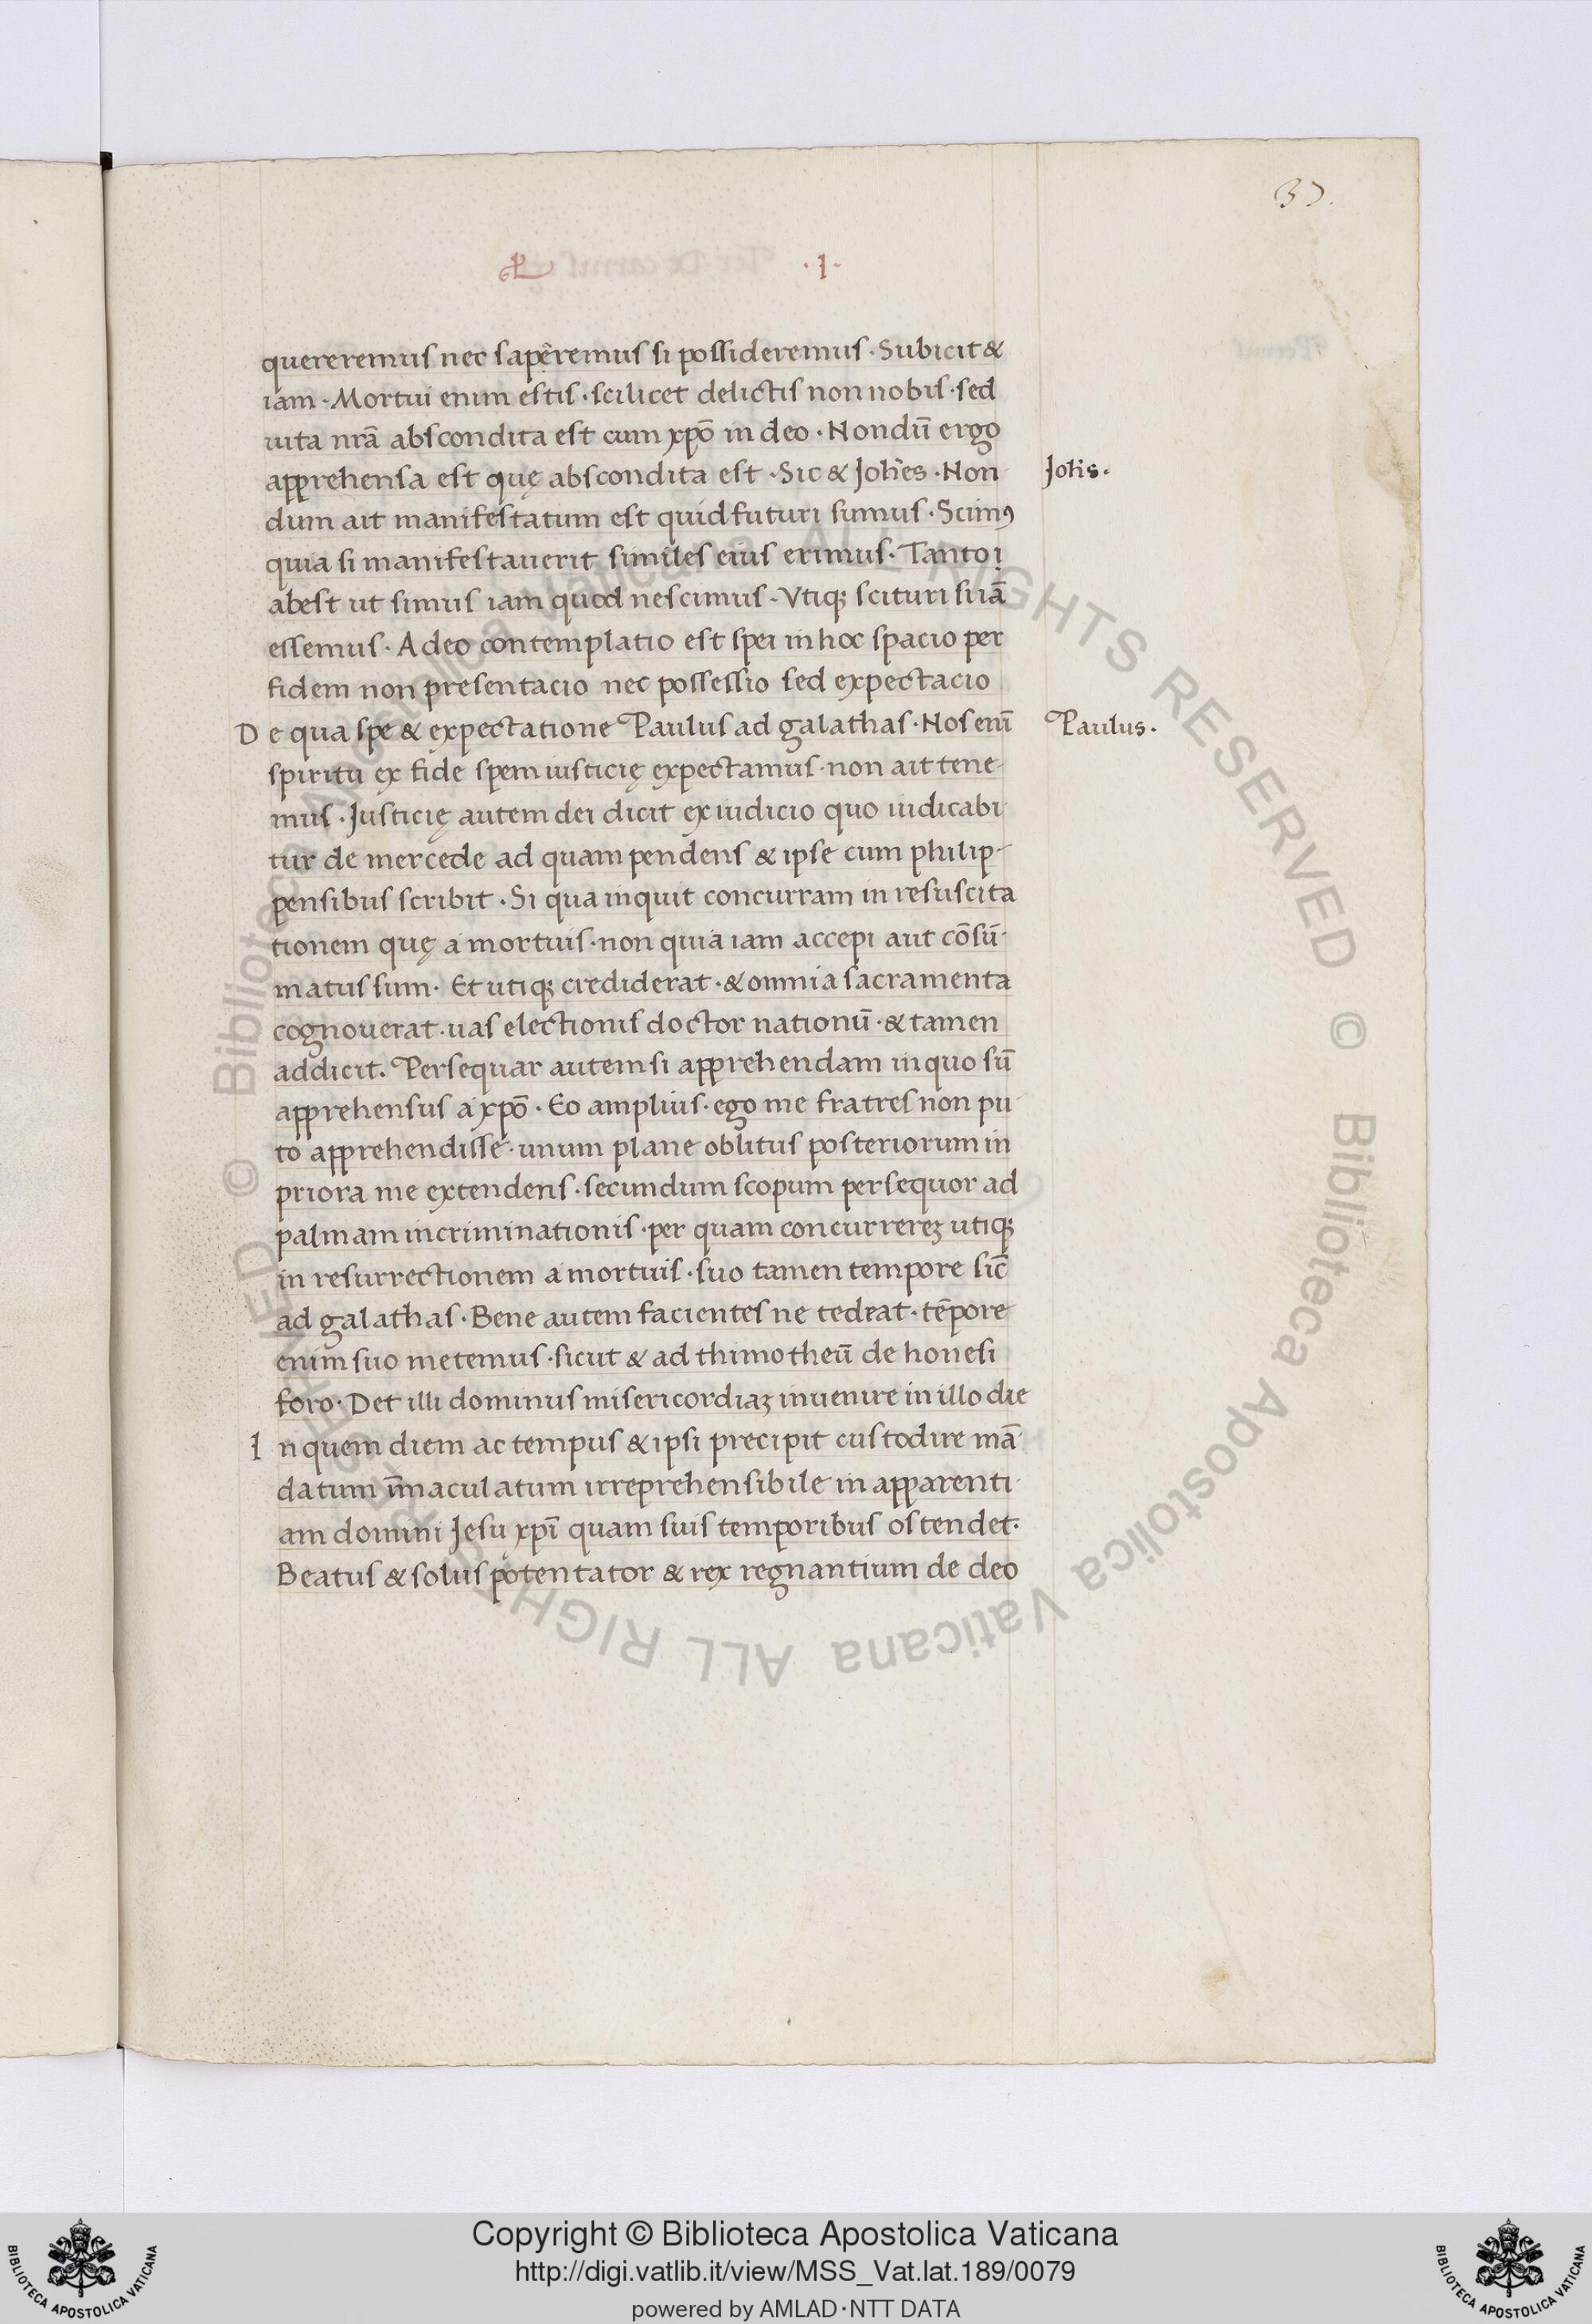 37.
·I·
quereremus nec saperemus si possideremus · Subicit &
iam · Mortui enim estis · scilicet delictis non nobis · sed
uita nrā abscondita est cum xpō in deo · Nondū ergo
apprehensa est quę abscondita est · Sic & Joh̄es · Non
Joh̄s·
dum ait manifestatum est quid futuri sumus · Scimꝰ
quia si manifestauerit similes eius erimus · Tanto
abest ut simus iam quod nescimus · Vtiqꝫ scituri si iā
essemus · Adeo contemplatio est spei in hoc spacio per
fidem non presentacio nec possessio sed expectacio
De qua spe & expectatione Paulus ad galathas · Nos enī
Paulus·
spiritu ex fide spem iusticię expectamus · non ait tene-
mus · Justicię autem dei dicit ex iudicio quo iudicabi
tur de mercede ad quam pendens & ipse cum philip-
pensibus scribit · Si qua inquit concurram in resuscita
tionem quę a mortuis · non quia iam accepi aut cōsū-
matus sum · Et utiqꝫ crediderat · & omnia sacramenta
cognouerat · uas electionis doctor nationū · & tamen
addicit. Persequar autem si apprehendam in quo sū
apprehensus a xpō · Eo amplius · ego me fratres non pu
to apprehendisse · unum plane oblitus posteriorum in
priora me extendens · secundum scopum persequor ad
palmam incriminationis · per quam concurrereꝫ utiqꝫ
in resurrectionem a mortuis · suo tamen tempore sic̄
ad galathas · Bene autem facientes ne tedeat · tēpore
enim suo metemus · sicut & ad thimotheū de honesi
foro · Det illi dominus misericordiaꝫ inuenire in illo die
In quem diem ac tempus & ipsi precipit custodire mā
datum īmaculatum irreprehensibile in apparenti
am domini Jesu xpī quam suis temporibus ostendet·
Beatus & solus potentator & rex regnantium de deo
© Biblioteca Apostolica Vaticana ALL RIGHTS RESERVED © Biblioteca Apostolica Vaticana ALL RIGHTS RESERVED
Copyright © Biblioteca Apostolica Vaticana
http://digi.vatlib.it/view/MSS_Vat.lat.189/0079
powered by AMLAD·NTT DATA
BIBLIOTECA APOSTOLICA VATICANA
BIBLIOTECA APOSTOLICA VATICANA